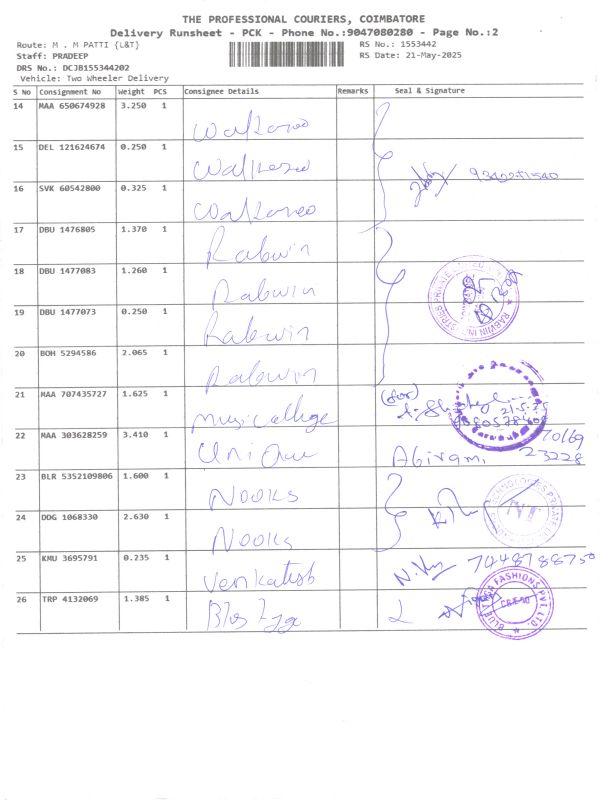 THE PROFESSIONAL COURIERS, COIMBATORE
Delivery Runsheet - PCK - Phone No.:9047080280 - Page No.:2
Route: M . M PATTI {L&T}
RS No.: 1553442
Staff: PRADEEP
RS Date: 21-May-2025
DRS No.: DCJB155344202
Vehicle: Two Wheeler Delivery
S No Consignment No Weight PCS Consignee Details Remarks Seal & Signature
14 MAA 650674928 3.250 1
15 DEL 121624674 0.250 1
16 SVK 60542800 0.325 1
17 DBU 1476805 1.370 1 Rabwin
18 DBU 1477083 1.260 1 Rabwin
19 DBU 1477073 0.250 1 Rabwin
20 BOH 5294586 2.065 1 Rabwin
21 MAA 707435727 1.625 1 (for) 21-5-25
22 MAA 303628259 3.410 1 Abirami 70169
23228
23 BLR 5352109806 1.600 1 Nooks
24 DDG 1068330 2.630 1 Nooks
25 KMU 3695791 0.235 1 Venkatesh 7448788750
26 TRP 4132069 1.385 1